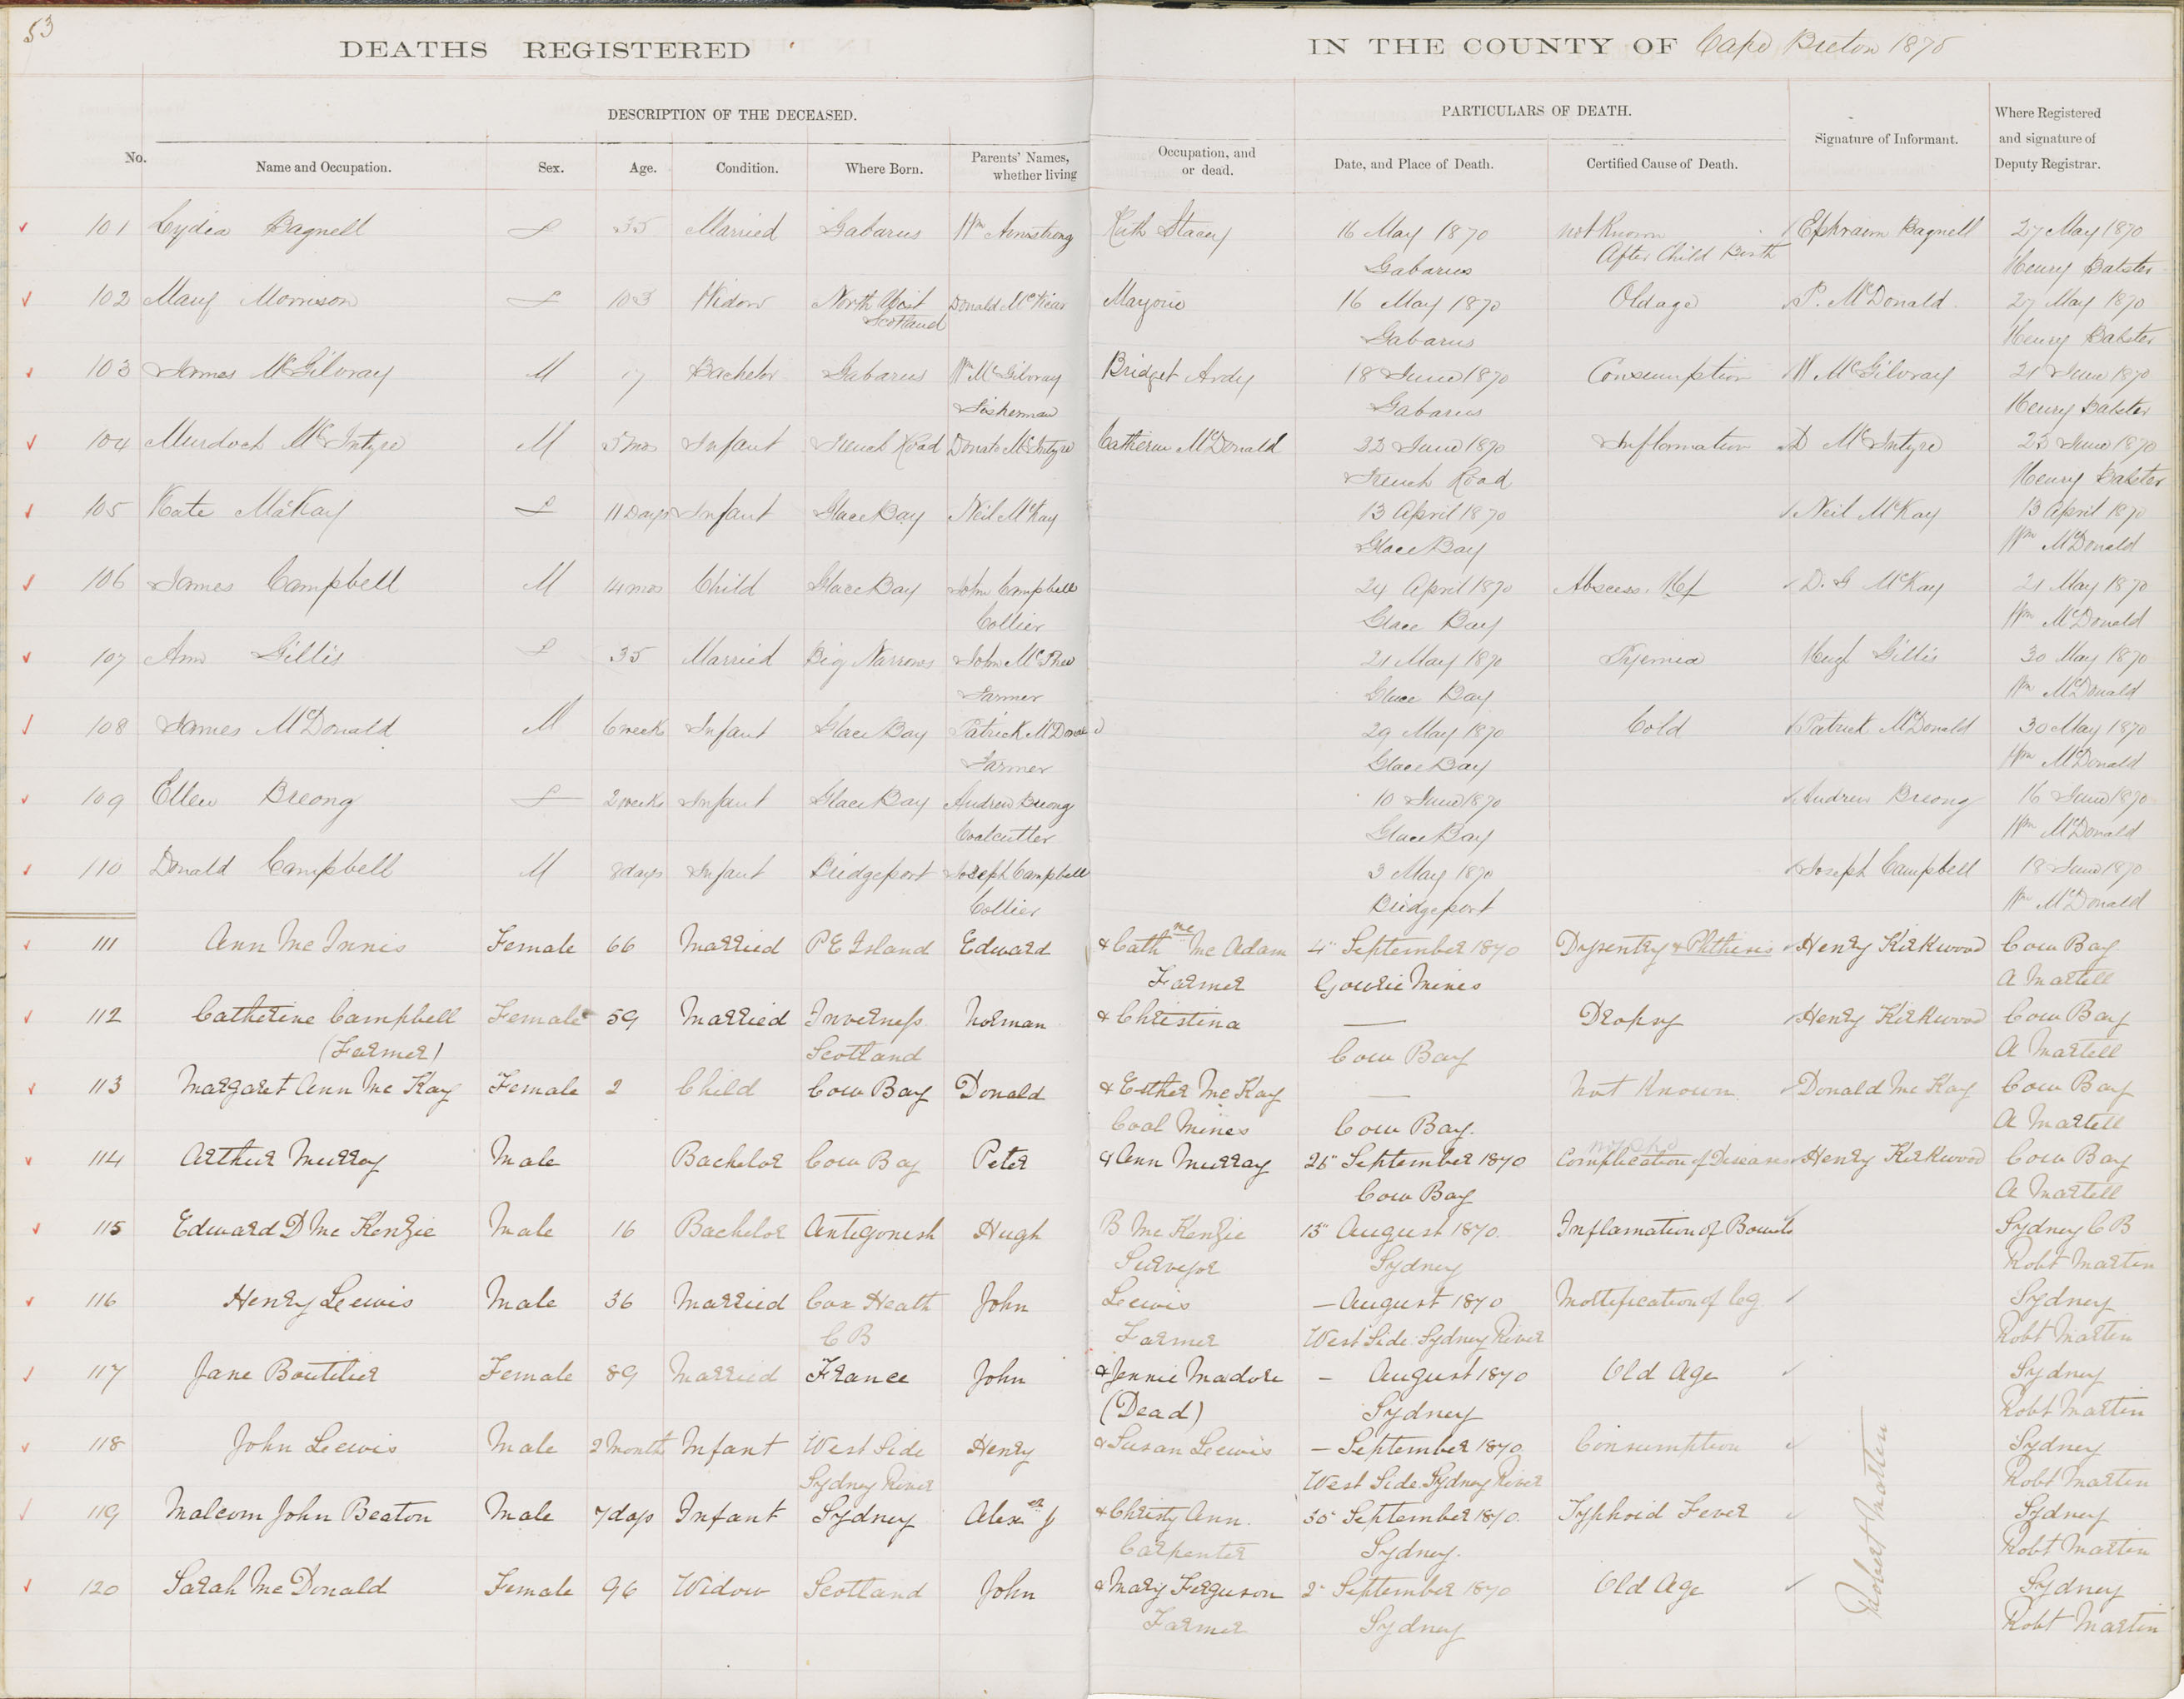 53
DEATHS REGISTERED IN THE COUNTY OF Cape Breton 1870
DESCRIPTION OF THE DECEASED. PARTICULARS OF DEATH. Where Registered
No. Name and Occupation. Sex. Age. Condition. Where Born. Parents' Names, Occupation, and Date, and Place of Death. Certified Cause of Death. Signature of Informant. and signature of
whether living or dead. Deputy Registrar.
101 Lydia Bagnell F 35 Married Gabarus Wm Armstrong Kath Stacey 16 May 1870 not Known Ephraim Bagnell 27 May 1870
Gabarus After Child Birth Henry Batster
102 Mary Morrison F 103 Widow North Uist Donald McVicar Marjorie 16 May 1870 Oldage P. McDonald 27 May 1870
Scotland Gabarus Henry Batster
103 James McGilvray M 17 Bachelor Gabarus Wm McGilvray Bridget Ardy 18 June 1870 Consumption W McGilvray 21 June 1870
Fisherman Gabarus Henry Batster
104 Murdoch McIntyre M 5 mos Infant French Road Donald McIntyre Catherine McDonald 22 June 1870 Inflamation D McIntyre 23 June 1870
French Road Henry Batster
105 Kate McKay F 11 Days Infant Glace Bay Neil McKay 13 April 1870 Neil McKay 13 April 1870
Glace Bay Wm McDonald
106 James Campbell M 14 mos Child Glace Bay John Campbell 24 April 1870 Abscess D. G McKay 21 May 1870
Collier Glace Bay Wm McDonald
107 Ann Gillis F 35 Married Big Narrows John McPhee 21 May 1870 Hugh Gillis 30 May 1870
Farmer Glace Bay Wm McDonald
108 James McDonald M 6 weeks Infant Glace Bay Patrick McDonald 29 May 1870 Cold Patrick McDonald 30 May 1870
Farmer Glace Bay Wm McDonald
109 Ellen Breong F 2 weeks Infant Glace Bay Andrew Breong 10 June 1870 Andrew Breong 16 June 1870
Coalcutter Glace Bay Wm McDonald
110 Donald Campbell M 8 days Infant Bridgeport Joseph Campbell 3 May 1870 Joseph Campbell 18 June 1870
Collier Bridgeport Wm McDonald
111 Ann Mc Innis Female 66 Married P E Island Edward & Cathne Mc Adam 4" September 1870 Dysentry & Phthesis Henry Kirkwood Cow Bay
Farmer Gowrie Mines A Martell
112 Catherine Campbell Female 59 Married Inverness Norman & Christina — Dropsy Henry Kirkwood Cow Bay
(Farmer) Scotland Cow Bay A Martell
113 Margaret Ann Mc Kay Female 2 Child Cow Bay Donald & Esther Mc Kay — Not Known Donald Mc Kay Cow Bay
Coal Mines Cow Bay. A Martell
114 Arthur Murray Male Bachelor Cow Bay Peter & Ann Murray 26" September 1870 Complication of Diseases Henry Kirkwood Cow Bay
Cow Bay A Martell
115 Edward D Mc Kenzie Male 16 Bachelor Antigonish Hugh B Mc Kenzie 13" August 1870. Inflamation of Bowels Sydney C B
Surveyor Sydney Robt Martin
116 Henry Leewis Male 36 Married Cox Heath John Leewis — August 1870 Mortification of leg Sydney
C B Farmer West Side Sydney River Robt Martin
117 Jane Boutilier Female 89 Married France John & Jennie Madore – August 1870 Old Age Sydney
(Dead) Sydney Robt Martin
118 John Leewis Male 2 Month Infant West Side Henry & Susan Leewis – September 1870 Consumption Sydney
Sydney River West Side Sydney River Robt Martin
119 Malcom John Beaton Male 7 days Infant Sydney Alexr J & Christy Ann. 30" September 1870. Typhoid Fever Sydney
Carpenter Sydney. Robt Martin
120 Sarah Mc Donald Female 96 Widow Scotland John & Mary Ferguson 2" September 1870 Old Age Sydney
Farmer Sydney Robt Martin
Robert Martin